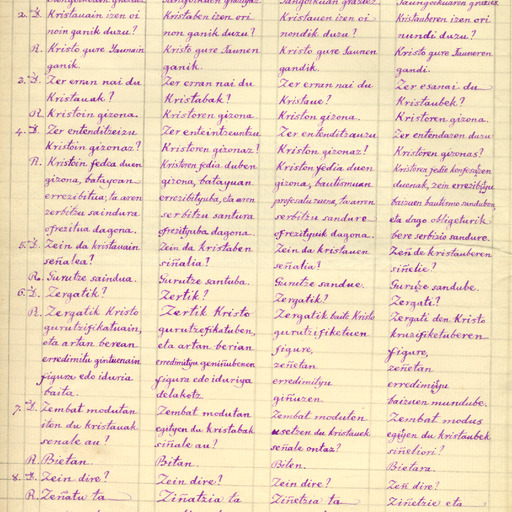 2. D. Kristauain izen oi Kristaben izen ori Kristauen izen oi Kristauberen izen ori
noin ganik duzu? non ganik duzu? nondik duzu? nundi duzu?
R. Kristo gure Jaunain Kristo gure Jaunen Kristo gure Jaunen Kristo gure Jauneren
ganik. ganik. gandik. gandi.
3. D. Zer erran nai du Zer erran nai du Zer erran nai du Zer esanai du
Kristauak? Kristabak? Kristaue? Kristaubek?
R. Kristoin gizona. Kristoren gizona. Kriston gizona. Kristoren gizona.
4. D. Zer entenditzeizu Zer enteintzeuntzu Zer entenditzauzu Zer entendazen dazu
Kristoin gizonaz? Kristoren gizonaz? Kriston gizonaz? Kristoren gizonas?
R. Kristoin fedea duen Kristoren fedia duben Kriston fedia duen Kristoren fedie konfesatzen
gizona, batayoan gizona, batayuan gizona, bautismuan duenak, zein errezibitu
errezebitua; ta aren errezibityuba, eta aren profesatu zuena, ta aren baizuen bautismo sanduben,
zerbitzu saindura serbitzu santura serbitzu sandure eta dago obligeturik
ofrezitua dagona. ofrezityuba dagona. ofrezityuik dagona. bere serbizio sandure.
D. Zein da kristauain Zein da kristaben Zein da kristauen Zeñ de kristauberen
señalea? siñalia? señalia? siñelie?
5. R. Gurutze saindua. Gurutze santuba. Gurutze sandue. Gurutze sandube.
6. D. Zergatik? Zertik? Zergatik? Zergati?
R. Zergatik Kristo Zertik Kristo Zergatik baite Kristo Zergati den Kristo
gurutzifikatuain, gurutzefikatuben, gurutzifiketuen kruzifiketuberen
eta artan berean eta artan berian figure, figure,
erredimitu gintuenain erredimityu geniñubenen zeñetan zeñetan
figura edo iduria figura edo iduriya erredimityu erredimityu
baita. delakotz. giñuzen. baizuen mundube.
7. D. Zembat modutan Zembat modutan Zembat modutan Zembat modus
sten du kristauak egityen du kristabak usetzen du kristauek egityen du kristaubek
senale au? siñale au? señale ontaz? siñeliori?
R. Bietan. Bitan. Biten. Bietara.
8. D. Zein dire? Zein dire? Zein dire? Zeñ dire?
R. Zeñatu ta Ziñatzia ta Ziñetzia ta Ziñetzie eta